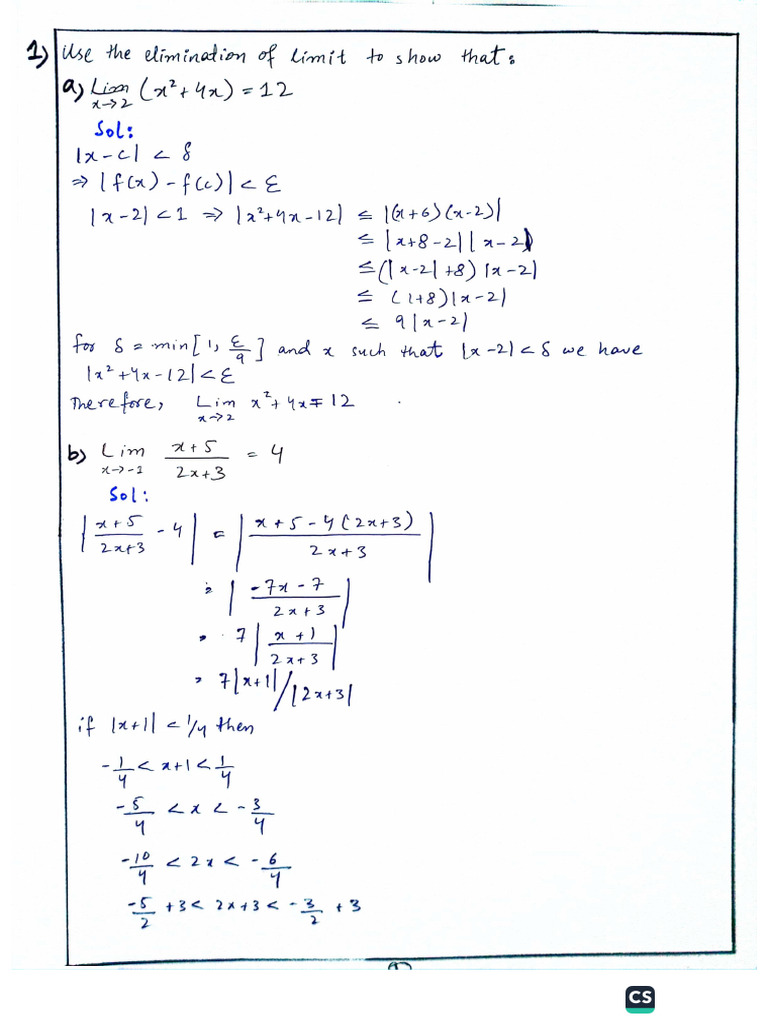 1) Use the elimination of limit to show that:
a) Lim x→2 (x² + 4x) = 12
Sol:
|x - c| < δ
⇒ |f(x) - f(c)| < ε
|x - 2| < 1 ⇒ |x² + 4x - 12| ≤ |(x+6)(x-2)|
≤ |x+8-2| |x-2|
≤ (|x-2| + 8) |x-2|
≤ (1+8) |x-2|
≤ 9 |x-2|
for δ = min[1, ε/9] and x such that |x-2| < δ we have
|x² + 4x - 12| < ε
Therefore, Lim x→2 x² + 4x = 12 .
b) Lim x→-1 x+5/2x+3 = 4
Sol:
|x+5/2x+3 - 4| = |x+5-4(2x+3)/2x+3|
= |-7x-7/2x+3|
= 7 |x+1/2x+3|
= 7|x+1|/|2x+3|
if |x+1| < 1/4 then
-1/4 < x+1 < 1/4
-5/4 < x < -3/4
-10/4 < 2x < -6/4
-5/2 + 3 < 2x+3 < -3/2 + 3
CS